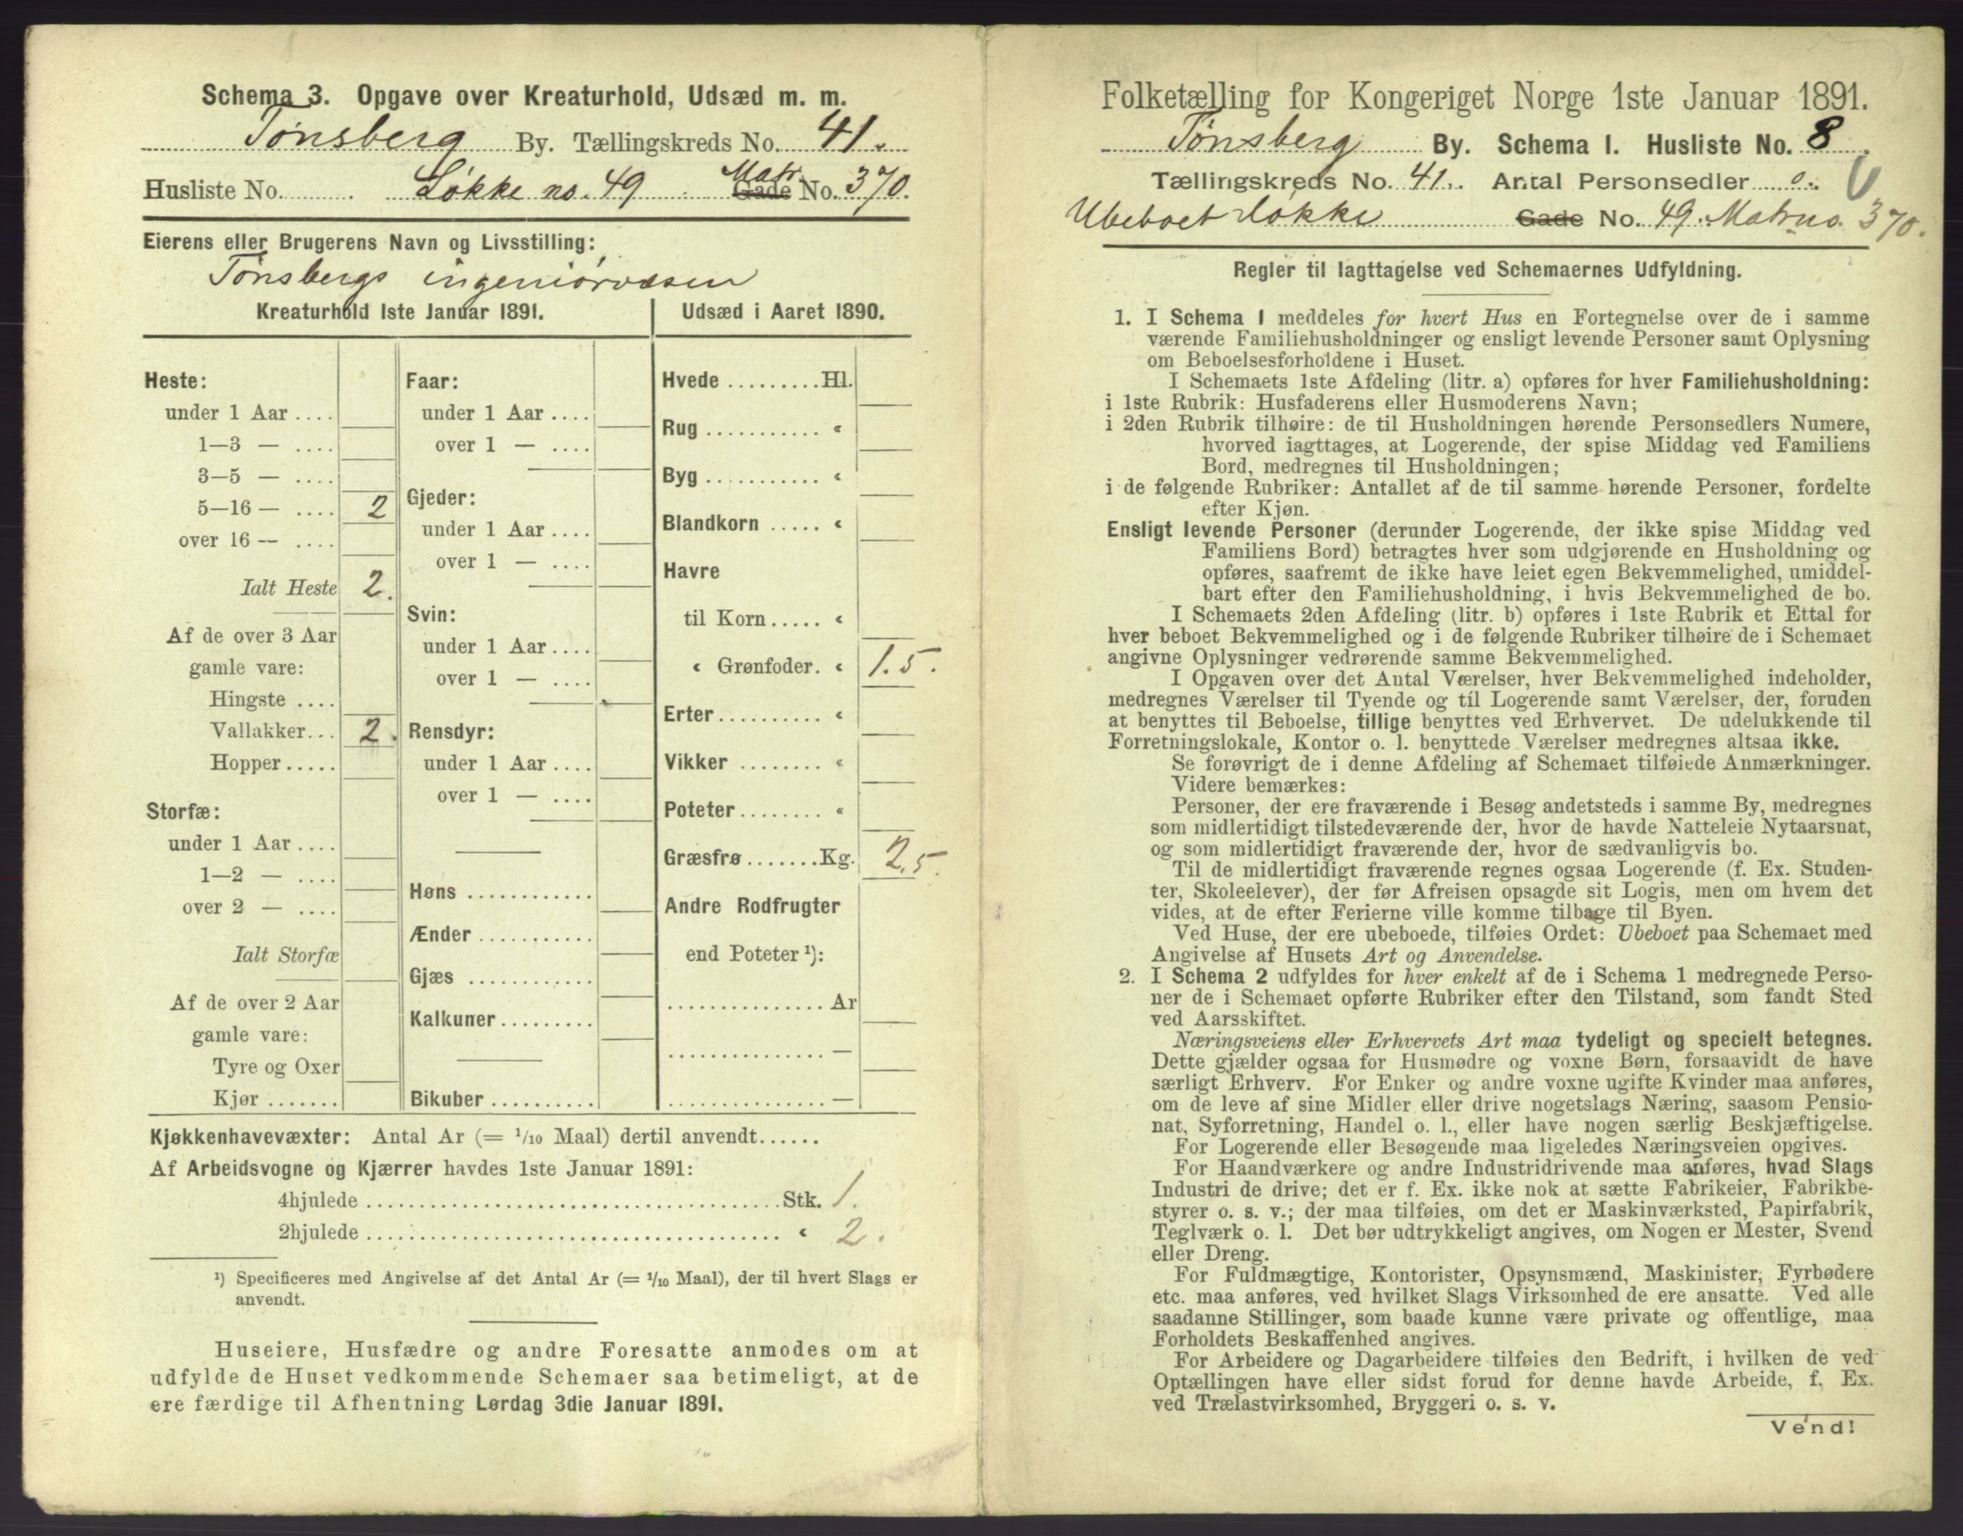 Schema 3. Opgave over Kreaturhold, Udsæd m. m.
Tønsberg By. Tællingskreds No. 41.
Husliste No. Løkke no. 49 Matr. Gade No. 370.
Eierens eller Brugerens Navn og Livsstilling:
Tønsbergs ingeniørvæsen
Kreaturhold 1ste Januar 1891.
Heste:
under 1 Aar ....
1—3 — ....
3—5 — ....
5—16 — .... 2
over 16 — ....
Ialt Heste 2.
Af de over 3 Aar
gamle vare:
Hingste ....
Vallakker... 2.
Hopper.....
Storfæ:
under 1 Aar ....
1—2 — ....
over 2 — ....
Ialt Storfæ
Af de over 2 Aar
gamle vare:
Tyre og Oxer
Kjør .......
Faar:
under 1 Aar ....
over 1 — ....
Gjeder:
under 1 Aar ....
over 1 — ....
Svin:
under 1 Aar ....
over 1 — ....
Rensdyr:
under 1 Aar ....
over 1 — ....
Høns ............
Ænder ...........
Gjæs ............
Kalkuner.........
Bikuber ..........
Udsæd i Aaret 1890.
Hvede .........Hl.
Rug ........... «
Byg ........... «
Blandkorn ..... «
Havre
til Korn ..... «
« Grønfoder. « 1.5.
Erter.......... «
Vikker ........ «
Poteter........ «
Græsfrø .......Kg. 2.5.
Andre Rodfrugter
end Poteter ¹):
............... Ar
............... —
............... —
Kjøkkenhavevæxter: Antal Ar (= 1/10 Maal) dertil anvendt......
Af Arbeidsvogne og Kjærrer havdes 1ste Januar 1891:
4hjulede ........................................Stk. 1.
2hjulede ........................................ « 2.
¹) Specificeres med Angivelse af det Antal Ar (= 1/10 Maal), der til hvert Slags er
anvendt.
Huseiere, Husfædre og andre Foresatte anmodes om at
udfylde de Huset vedkommende Schemaer saa betimeligt, at de
ere færdige til Afhentning Lørdag 3die Januar 1891.
Folketælling for Kongeriget Norge 1ste Januar 1891.
Tønsberg By. Schema I. Husliste No. 8
Tællingskreds No. 41. Antal Personsedler 0.
Ubeboet Løkke Gade No. 49. Matr. no. 370.
Regler til Iagttagelse ved Schemaernes Udfyldning.
1. I Schema I meddeles for hvert Hus en Fortegnelse over de i samme
værende Familiehusholdninger og ensligt levende Personer samt Oplysning
om Beboelsesforholdene i Huset.
I Schemaets 1ste Afdeling (litr. a) opføres for hver Familiehusholdning:
i 1ste Rubrik: Husfaderens eller Husmoderens Navn;
i 2den Rubrik tilhøire: de til Husholdningen hørende Personsedlers Numere,
hvorved iagttages, at Logerende, der spise Middag ved Familiens
Bord, medregnes til Husholdningen;
i de følgende Rubriker: Antallet af de til samme hørende Personer, fordelte
efter Kjøn.
Ensligt levende Personer (derunder Logerende, der ikke spise Middag ved
Familiens Bord) betragtes hver som udgjørende en Husholdning og
opføres, saafremt de ikke have leiet egen Bekvemmelighed, umiddel-
bart efter den Familiehusholdning, i hvis Bekvemmelighed de bo.
I Schemaets 2den Afdeling (litr. b) opføres i 1ste Rubrik et Ettal for
hver beboet Bekvemmelighed og i de følgende Rubriker tilhøire de i Schemaet
angivne Oplysninger vedrørende samme Bekvemmelighed.
I Opgaven over det Antal Værelser, hver Bekvemmelighed indeholder,
medregnes Værelser til Tyende og til Logerende samt Værelser, der, foruden
at benyttes til Beboelse, tillige benyttes ved Erhvervet. De udelukkende til
Forretningslokale, Kontor o. l. benyttede Værelser medregnes altsaa ikke.
Se forøvrigt de i denne Afdeling af Schemaet tilføiede Anmærkninger.
Videre bemærkes:
Personer, der ere fraværende i Besøg andetsteds i samme By, medregnes
som midlertidigt tilstedeværende der, hvor de havde Natteleie Nytaarsnat,
og som midlertidigt fraværende der, hvor de sædvanligvis bo.
Til de midlertidigt fraværende regnes ogsaa Logerende (f. Ex. Studen-
ter, Skoleelever), der før Afreisen opsagde sit Logis, men om hvem det
vides, at de efter Ferierne ville komme tilbage til Byen.
Ved Huse, der ere ubeboede, tilføies Ordet: Ubeboet paa Schemaet med
Angivelse af Husets Art og Anvendelse.
2. I Schema 2 udfyldes for hver enkelt af de i Schema 1 medregnede Perso-
ner de i Schemaet opførte Rubriker efter den Tilstand, som fandt Sted
ved Aarsskiftet.
Næringsveiens eller Erhvervets Art maa tydeligt og specielt betegnes.
Dette gjælder ogsaa for Husmødre og voxne Børn, forsaavidt de have
særligt Erhverv. For Enker og andre voxne ugifte Kvinder maa anføres,
om de leve af sine Midler eller drive nogetslags Næring, saasom Pensio-
nat, Syforretning, Handel o. l., eller have nogen særlig Beskjæftigelse.
For Logerende eller Besøgende maa ligeledes Næringsveien opgives.
For Haandværkere og andre Industridrivende maa anføres, hvad Slags
Industri de drive; det er f. Ex. ikke nok at sætte Fabrikeier, Fabrikbe-
styrer o. s. v.; der maa tilføies, om det er Maskinværksted, Papirfabrik,
Teglværk o. l. Det bør udtrykkeligt angives, om Nogen er Mester, Svend
eller Dreng.
For Fuldmægtige, Kontorister, Opsynsmænd, Maskinister, Fyrbødere
etc. maa anføres, ved hvilket Slags Virksomhed de ere ansatte. Ved alle
saadanne Stillinger, som baade kunne være private og offentlige, maa
Forholdets Beskaffenhed angives.
For Arbeidere og Dagarbeidere tilføies den Bedrift, i hvilken de ved
Optællingen have eller sidst forud for denne havde Arbeide, f. Ex.
ved Trælastvirksomhed, Bryggeri o. s. v.
Vend!